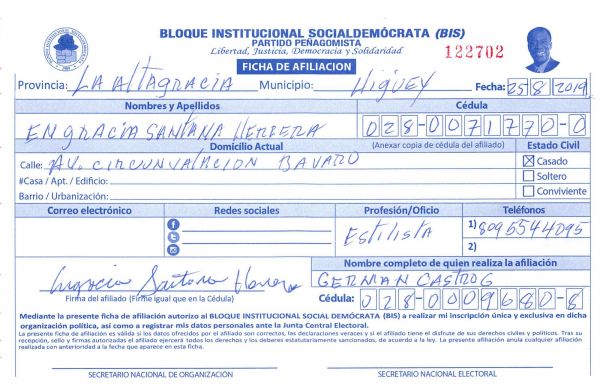 BLOQUE INSTITUCIONAL SOCIALDEMÓCRATA (BIS)
PARTIDO PEÑAGOMISTA
Libertad, Justicia, Democracia y Solidaridad
122702
FICHA DE AFILIACION
Provincia: LA ALTAGRACIA Municipio: Higüey Fecha: 25/8/2019
Nombres y Apellidos Cédula
ENGRACIA SANTANA HERRERA 028-0071770-0
Domicilio Actual (Anexar copia de cédula del afiliado) Estado Civil
Calle: AV. CIRCUNVALACION BAVARO Casado
#Casa / Apt. / Edificio: Soltero
Barrio / Urbanización: Conviviente
Correo electrónico Redes sociales Profesión/Oficio Teléfonos
Estilista 1) 8095544095
2)
Engracia Santana Herrera Nombre completo de quien realiza la afiliación
GERMAN CASTRO G
Firma del afiliado (Firme igual que en la Cédula) Cédula: 028-0009680-8
Mediante la presente ficha de afiliación autorizo al BLOQUE INSTITUCIONAL SOCIAL DEMÓCRATA (BIS) a realizar mi inscripción única y exclusiva en dicha
organización política, así como a registrar mis datos personales ante la Junta Central Electoral.
La presente ficha de afiliación es válida si los datos ofrecidos por el afiliado son correctos, las declaraciones veraces y si el afiliado tiene el disfrute de sus derechos civiles y políticos. Tras su
recepción, sello y firmas autorizadas el afiliado ejercerá todos los derechos y los deberes estatutariamente sancionados, de acuerdo a la ley. La presente afiliación anula cualquier afiliación
realizada con anterioridad a la fecha que aparece en esta ficha.
SECRETARIO NACIONAL DE ORGANIZACIÓN SECRETARIO NACIONAL ELECTORAL